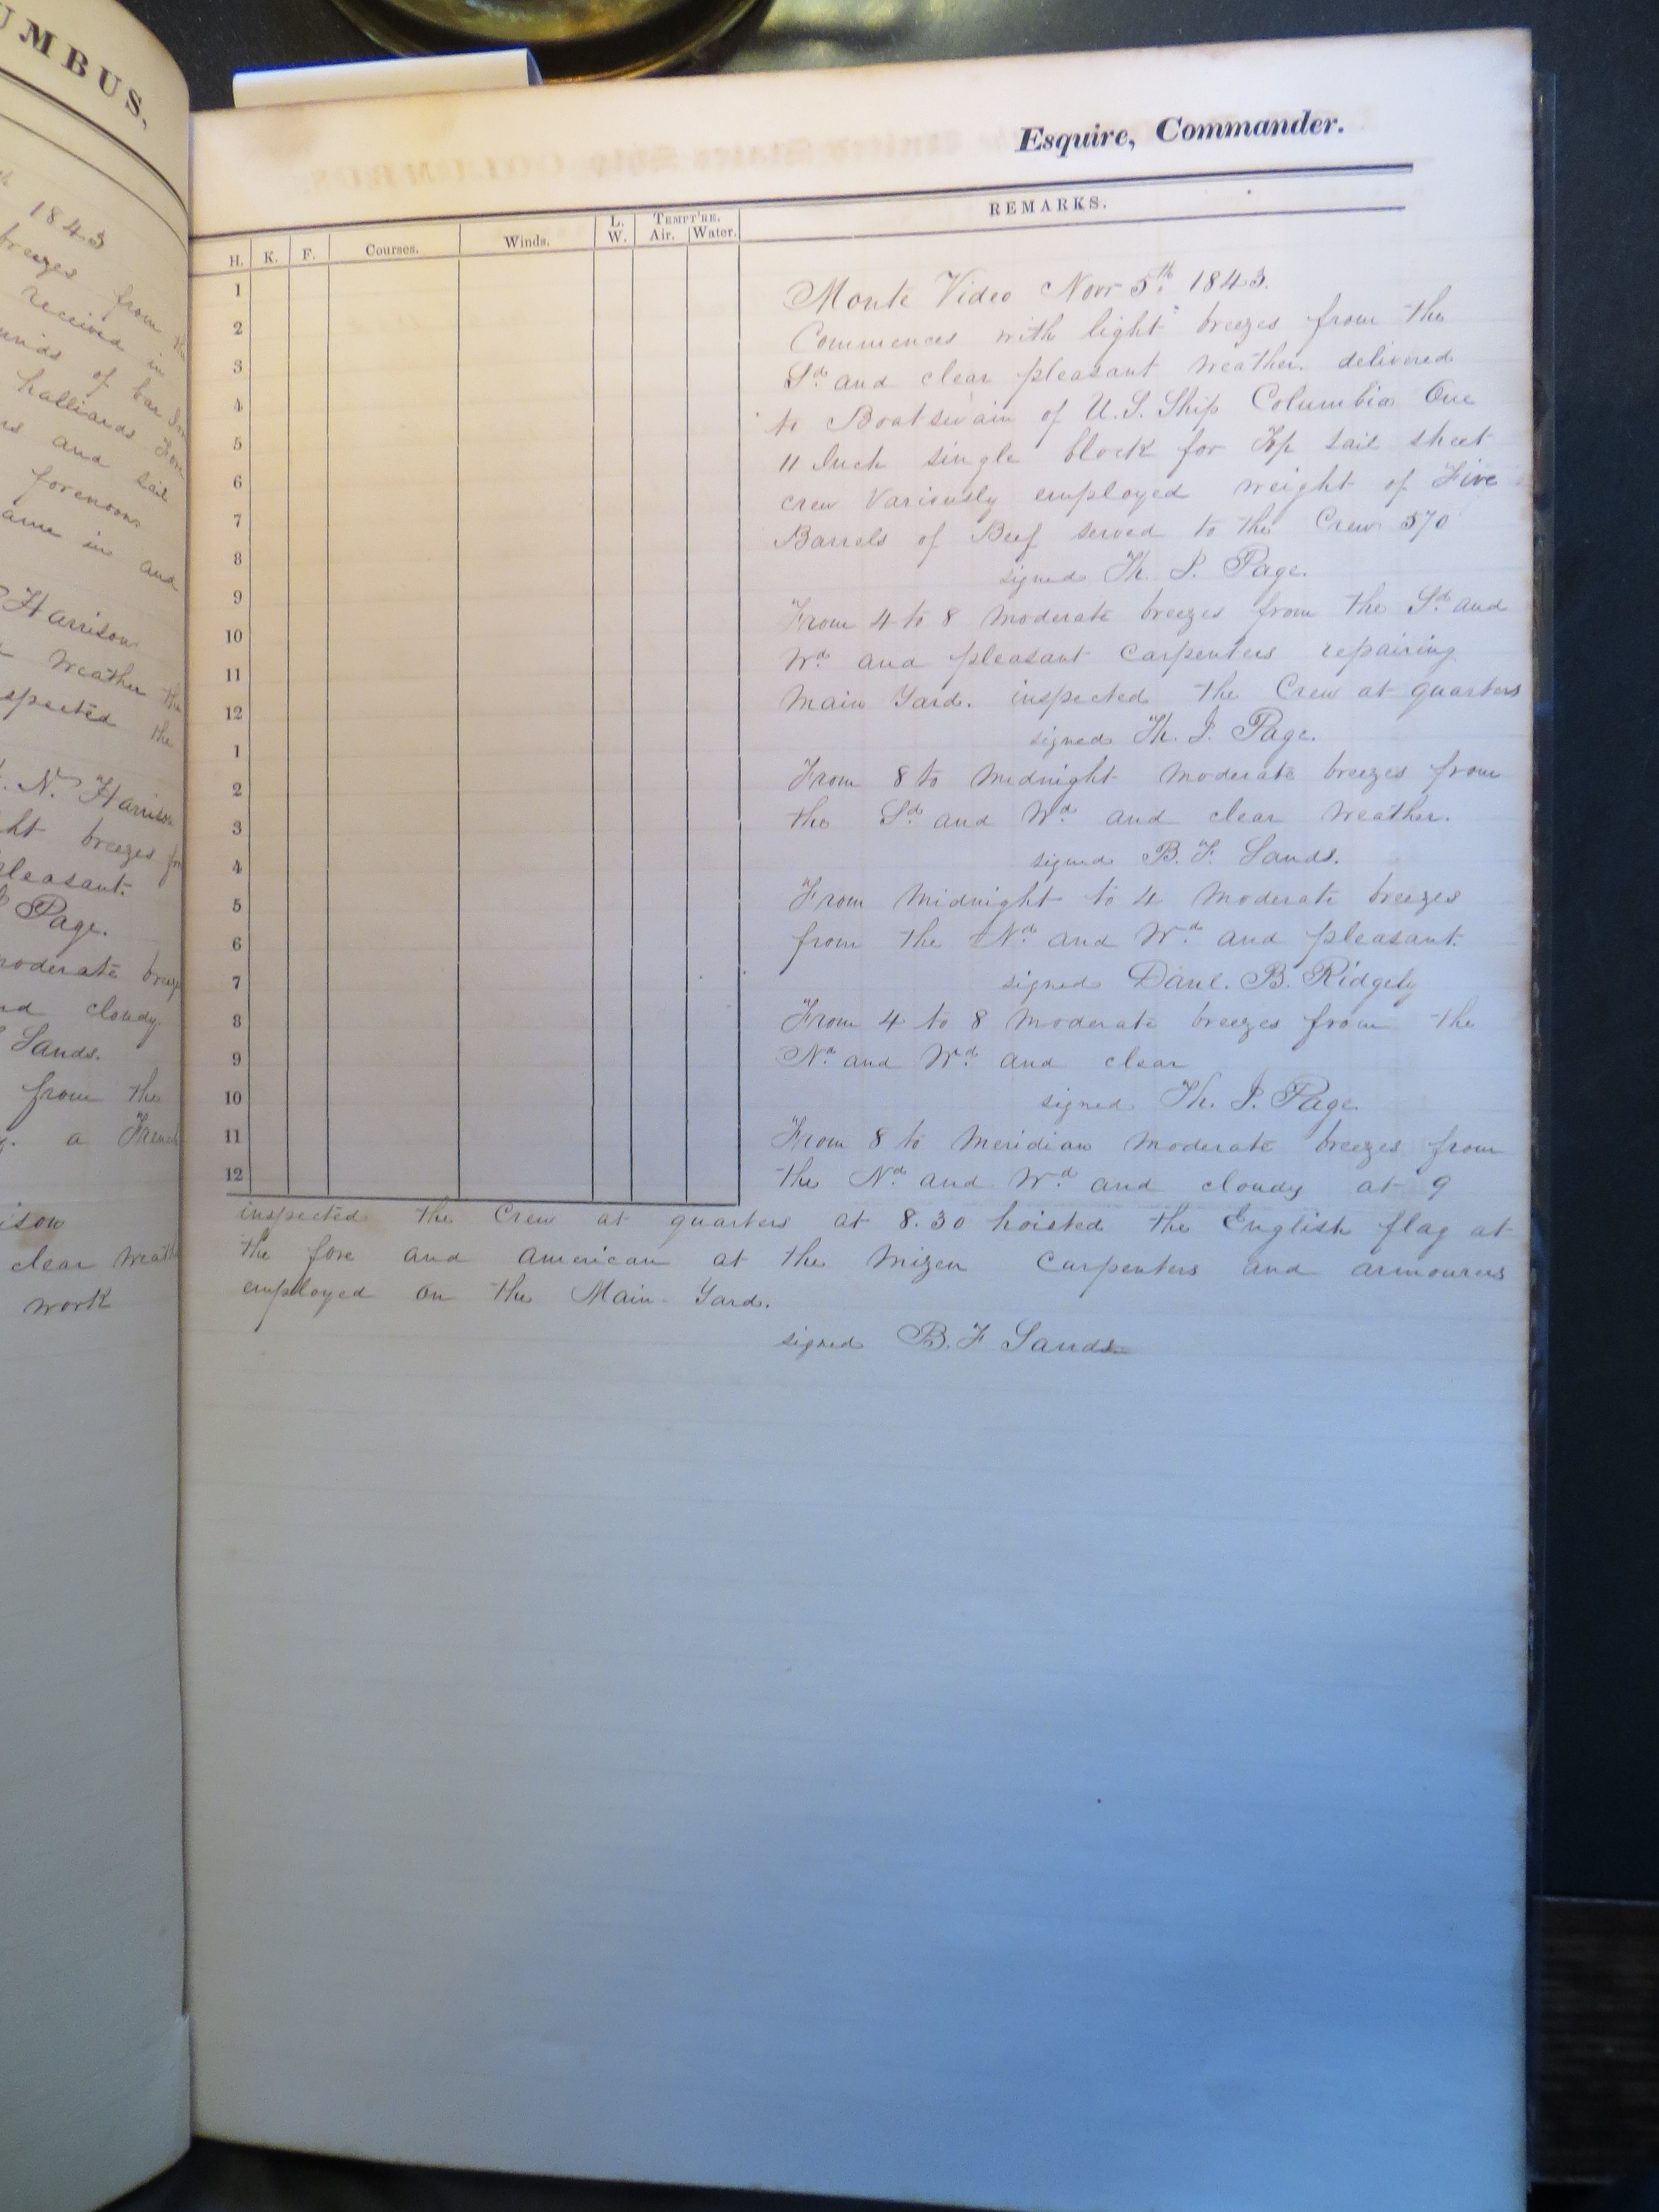 UMBUS,
1843
breezes from the
received in
of bar Iron
halliards
and sail
forenoon
came in and
Harrison
Weather
spected the
N. Harrison
ht breezes
pleasant.
Page.
moderate
cloudy
Sands.
from the
a French
clear
work
Esquire, Commander.
H. K. F. Courses. Winds. L. W. Tempt're. Air. Water. REMARKS.
1
2
3
4
5
6
7
8
9
10
11
12
1
2
3
4
5
6
7
8
9
10
11
12
Monte Video Novr 5th 1843.
Commences with light breezes from the
Sd and clear pleasant weather. delivered
to Boatswain of U.S. Ship Columbia One
11 Inch single block for Top sail sheet
crew Variously employed weight of Five
Barrels of Beef served to the Crew 570
signed Th. J. Page.
From 4 to 8 moderate breezes from the Sd and
Wd and pleasant Carpenters repairing
Main Yard. inspected the Crew at quarters
signed Th. J. Page.
From 8 to Midnight moderate breezes from
the Sd and Wd and clear weather.
signed B. F. Sands.
From Midnight to 4 moderate breezes
from the Nd and Wd and pleasant.
signed Danl. B. Ridgely
From 4 to 8 moderate breezes from the
Nd and Wd and clear
signed Th. J. Page.
From 8 to Meridian moderate breezes from
the Nd and Wd and cloudy at 9
inspected the Crew at quarters at 8.30 hoisted the English flag at
the fore and American at the Mizen Carpenters and armourers
employed on the Main Yard.
signed B. F Sands